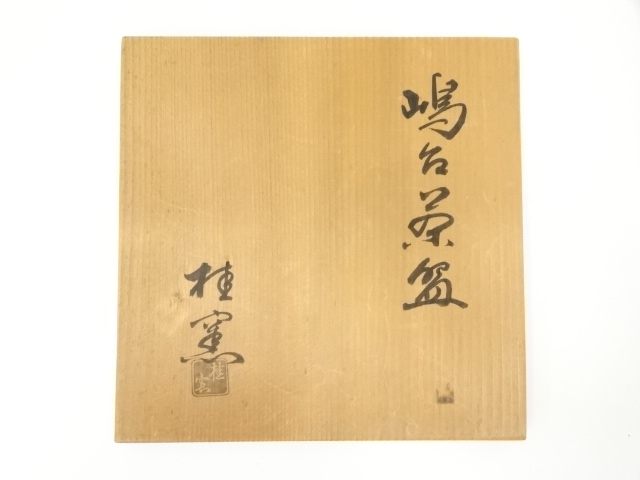 嶋台茶盌
桂窯
桂窯